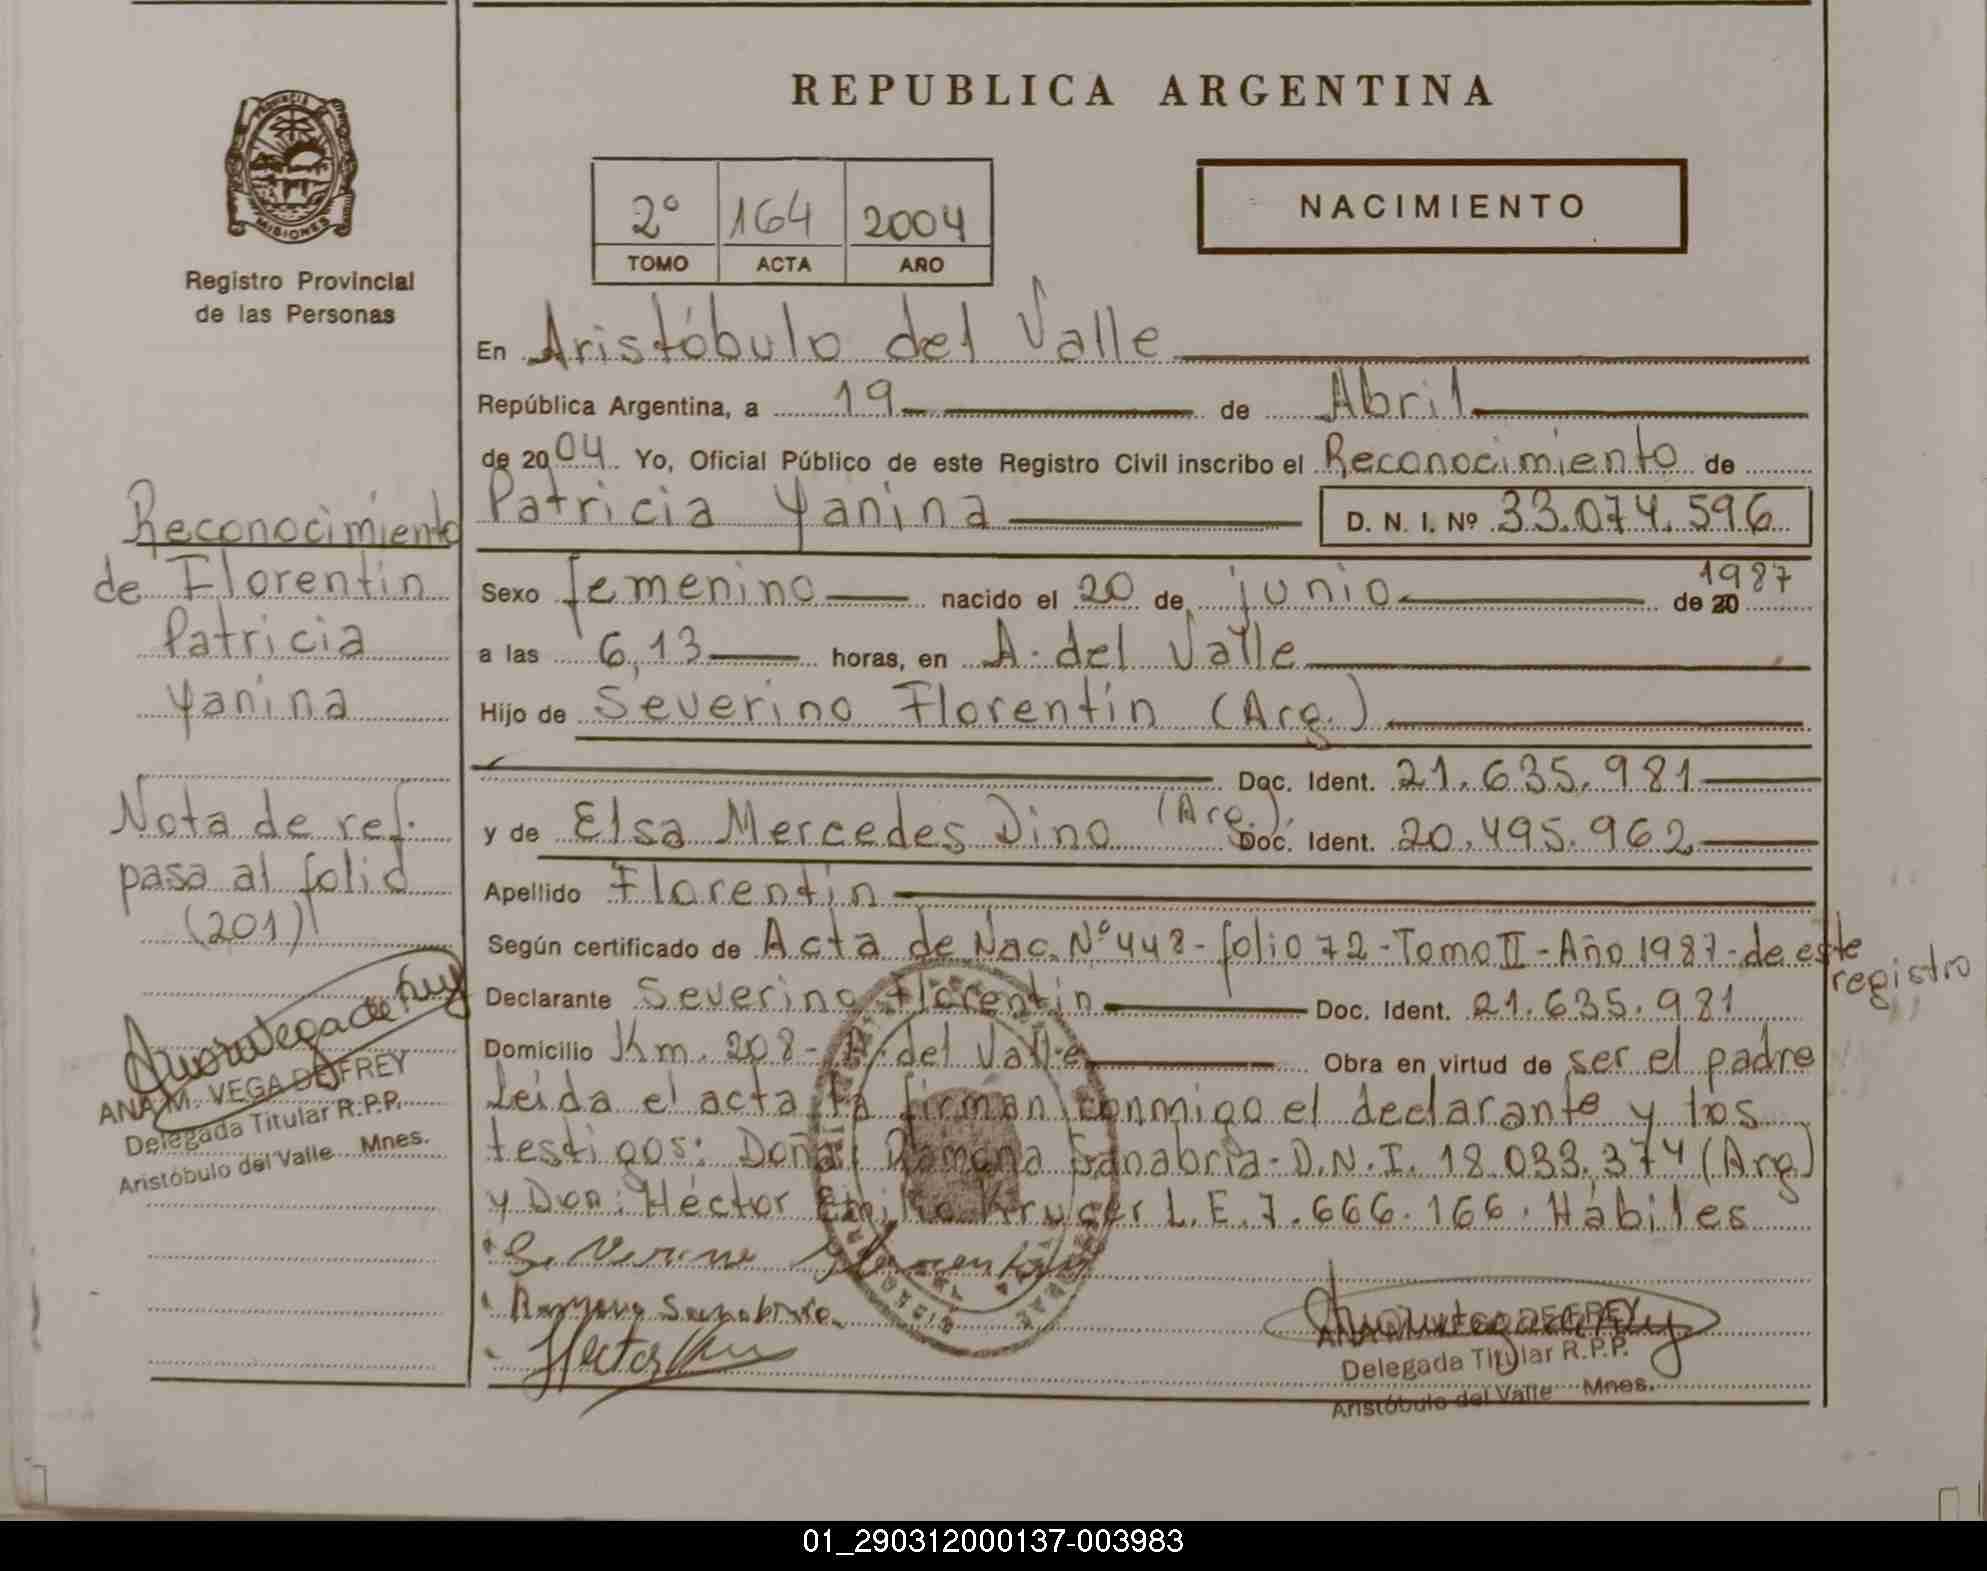 REPUBLICA ARGENTINA
PROVINCIA
MISIONES
Registro Provincial
de las Personas
2° 164 2004
TOMO ACTA AÑO
NACIMIENTO
En Aristóbulo del Valle
República Argentina, a 19 de Abril
de 2004 Yo, Oficial Público de este Registro Civil inscribo el Reconocimiento de
Patricia Yanina D. N. I. Nº 33.074.596
Sexo femenino nacido el 20 de junio de 20 1987
a las 6,13 horas, en A. del Valle
Hijo de Severino Florentín (Arg.)
Doc. Ident. 21.635.981
y de Elsa Mercedes Dino (Arg.) Doc. Ident. 20.495.962
Apellido Florentín
Según certificado de Acta de Nac. Nº 448 - folio 72 - Tomo II - Año 1987 - de este registro
Declarante Severino Florentín Doc. Ident. 21.635.981
Domicilio Km. 208 - A. del Valle Obra en virtud de ser el padre
Leída el acta la firman conmigo el declarante y los
testigos: Doña: Ramona Sanabria - D.N.I. 18.033.374 (Arg)
y Don: Héctor Emilio Kruger L.E. 7.666.166. Hábiles
Severino Florentín
Ramona Sanabria
Hector
ANA M. VEGA DE FREY
Delegada Titular R.P.P.
Aristóbulo del Valle Mnes.
Reconocimiento
de Florentín
Patricia
Yanina
Nota de ref.
pasa al folio
(201)
ANA M. VEGA DE FREY
Delegada Titular R.P.P.
Aristóbulo del Valle Mnes.
01_290312000137-003983